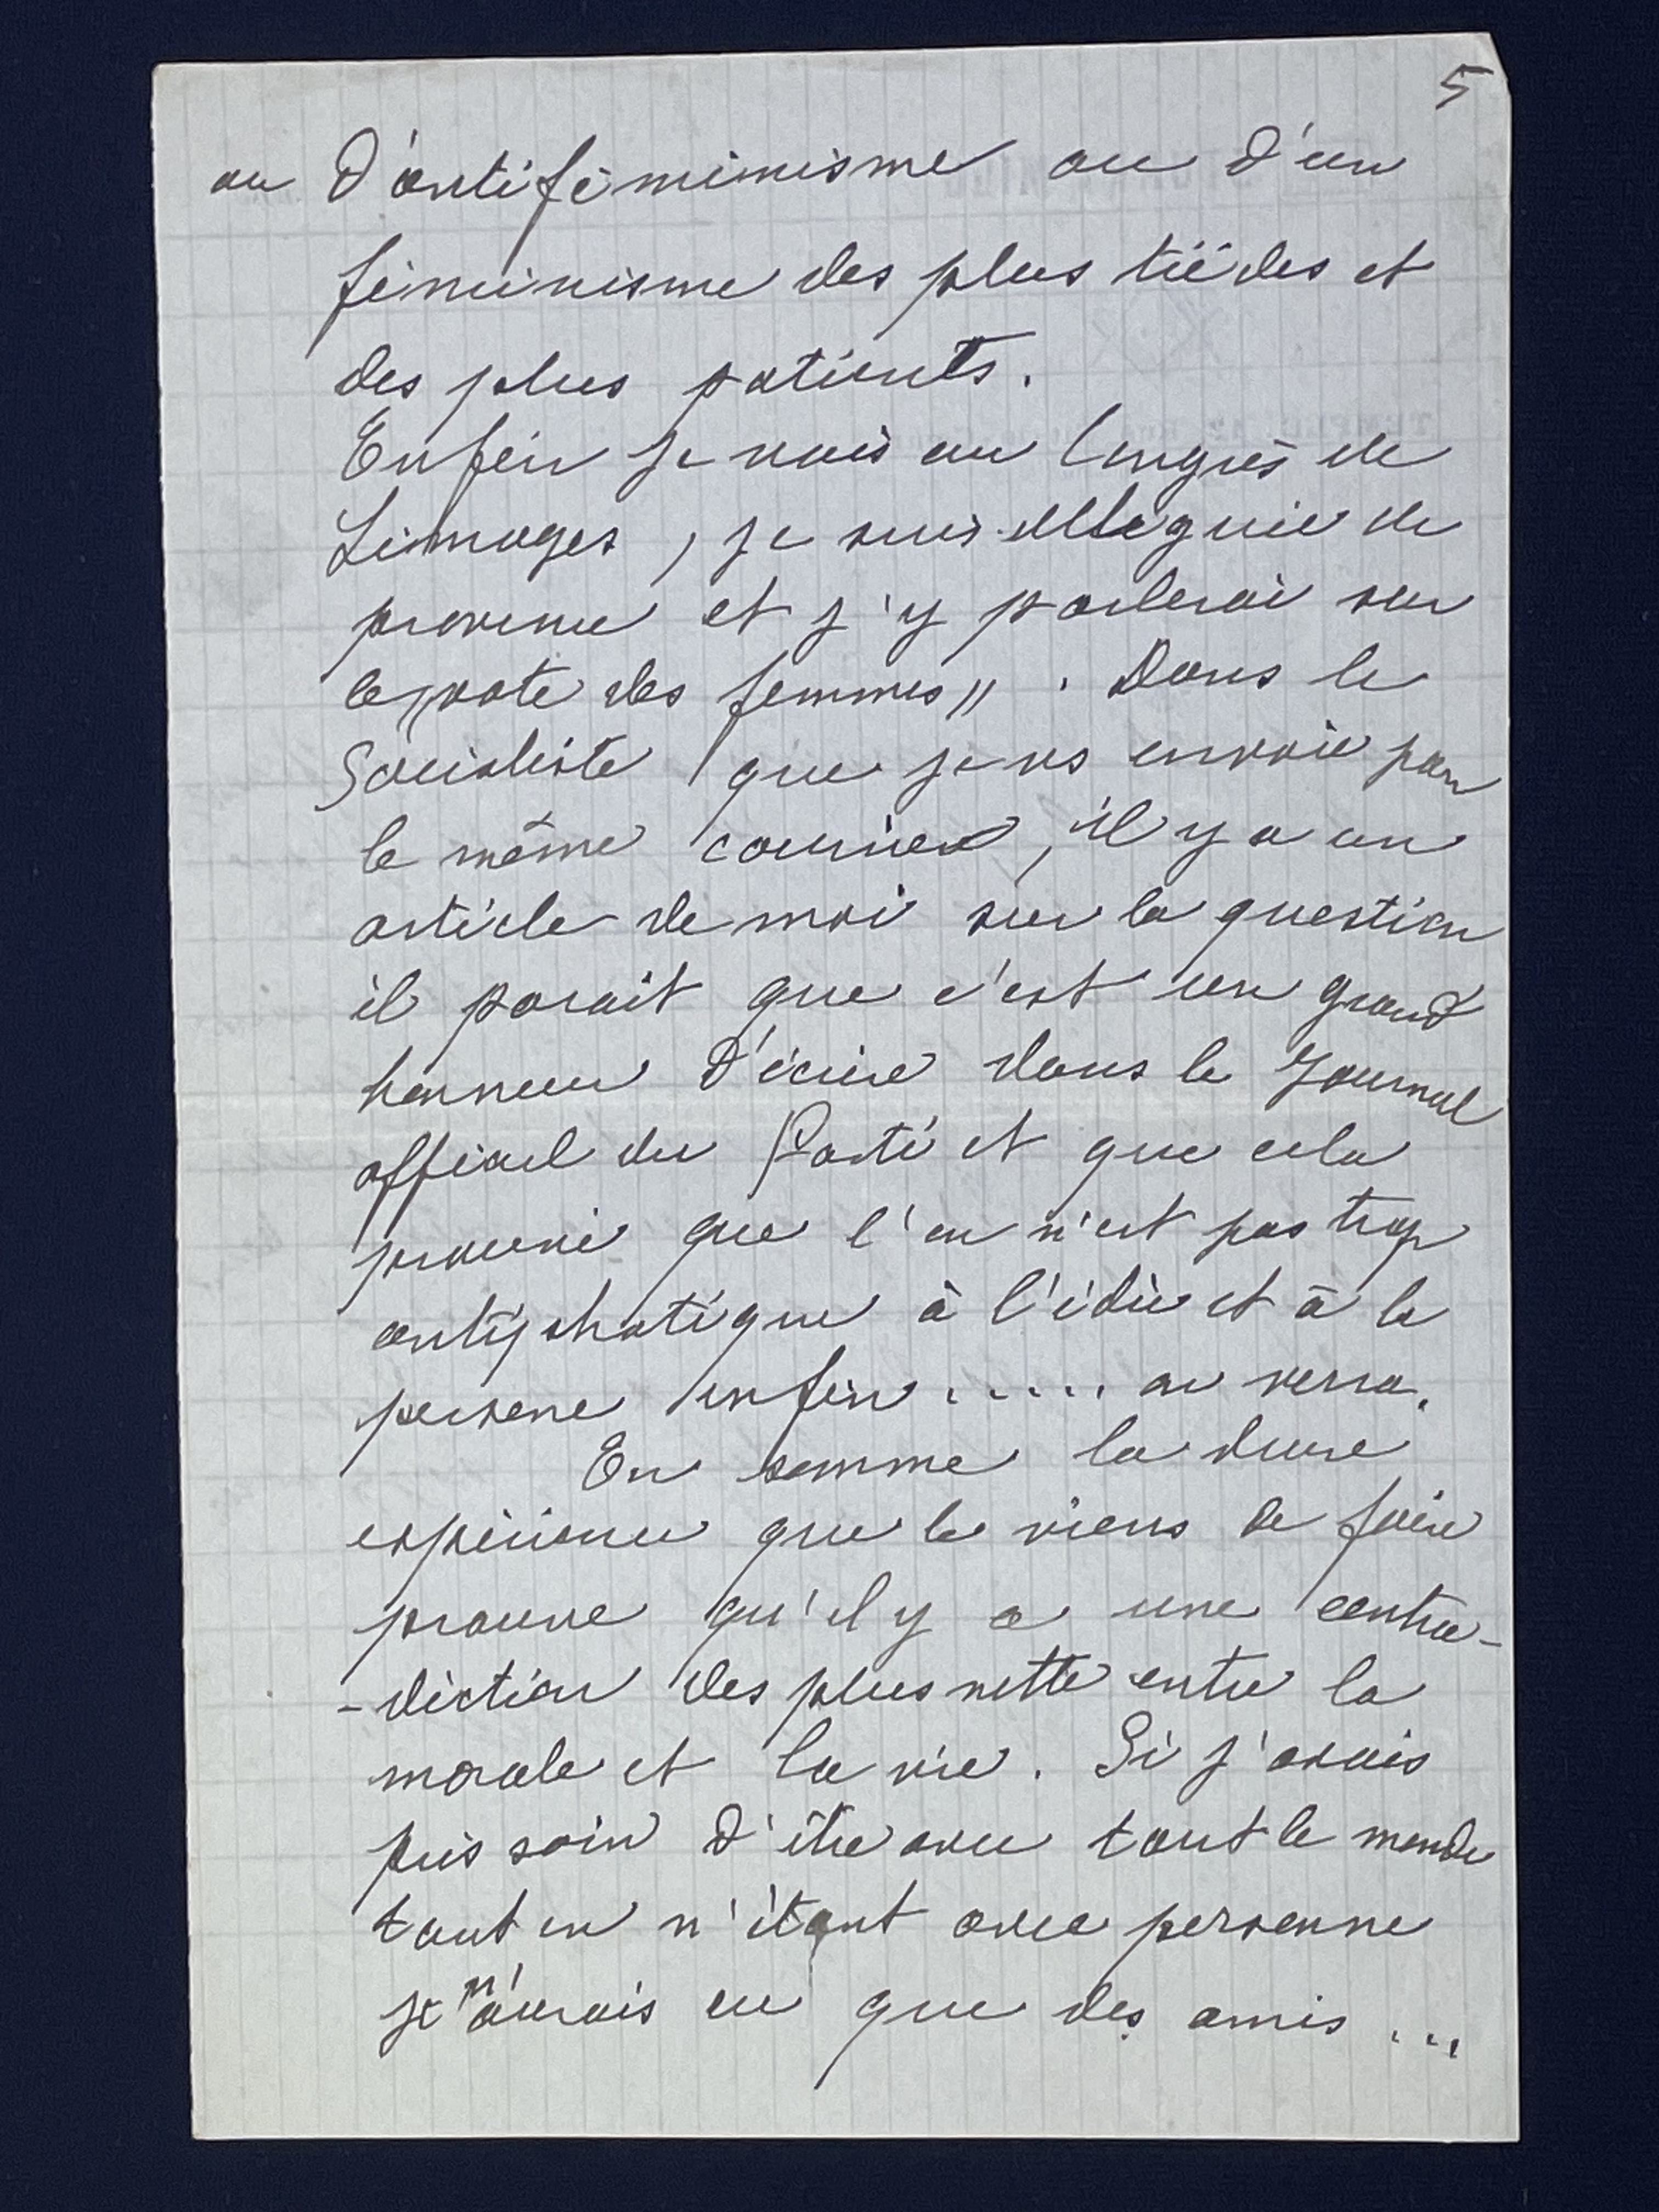 5
ou d'antiféminisme ou d'un
féminisme des plus tièdes et
des plus patients.
Enfin je vais au Congrès de
Limoges, je suis délléguée de
province et j'y parlerai sur
le "vote des femmes". Dans le
Socialiste que je vs envoie par
le même courrier, il y a un
article de moi sur la question
il parait que c'est un grand
honneur d'écrire dans le Journal
officiel du Parti et que cela
prouve que l'on n'est pas trop
antiphatique à l'idée et à la
persone enfin ..... on verra.
En somme la dure
expérience que le viens de faire
prouve qu'il y a une contra-
-diction des plus nette entre la
morale et la vie. Si j'avais
pris soin d'être avec tout le monde
tout en n'étant avec personne
je n'aurais eu que des amis ...